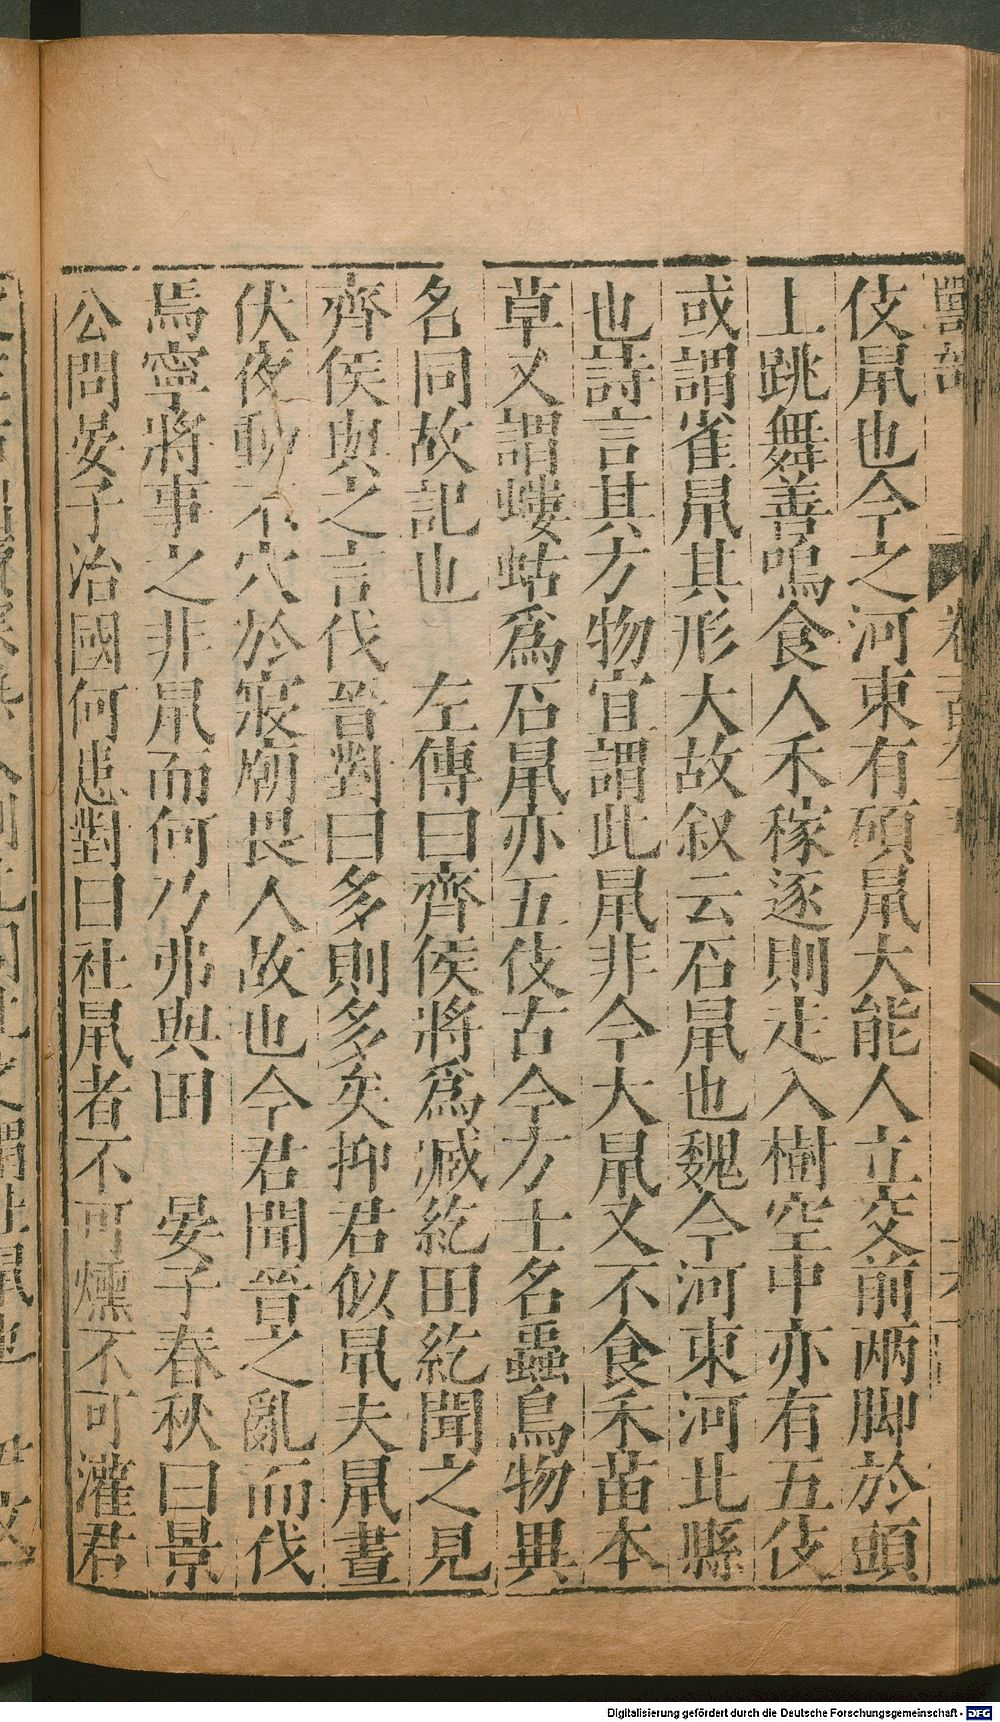 獸部
伎鼠也今之河東有碩鼠大能人立交前兩脚於頭
上跳舞善鳴食人禾稼逐則走入樹空中亦有五伎
或謂雀鼠其形大故叙云石鼠也魏今河東河北縣
也詩言其方物宜謂此鼠非今大鼠又不食禾苗本
草又謂螻蛄爲石鼠亦五伎古今方士名蟲鳥物異
名同故記也 左傳曰齊侯將爲臧紇田紇聞之見
齊侯與之言伐晉對曰多則多矣抑君似鼠夫鼠晝
伏夜動不穴於寢廟畏人故也今君聞晉之亂而伐
焉寧將事之非鼠而何乃弗與田 晏子春秋曰景
公問晏子治國何患對曰社鼠者不可燻不可灌君
Digitalisierung gefördert durch die Deutsche Forschungsgemeinschaft - DFG